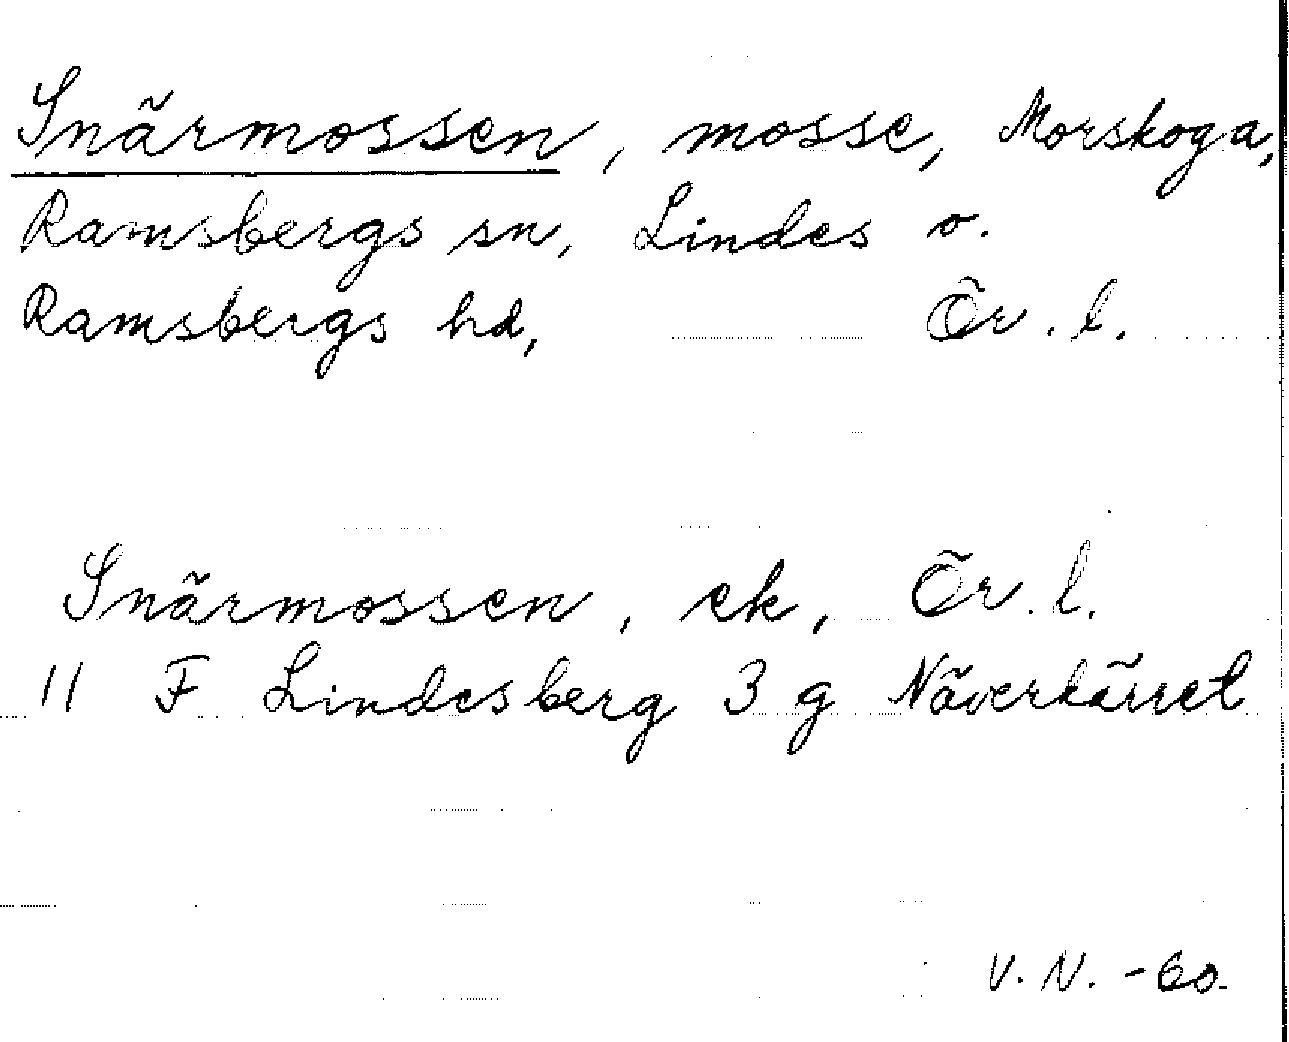 Snärmossen, mosse, Morskoga,
Ramsbergs sn, Lindes o.
Ramsbergs hd, Ör. l.
Snärmossen, ek, Ör. l.
11 F Lindesberg 3 g Näverkärret
V. N. -60.